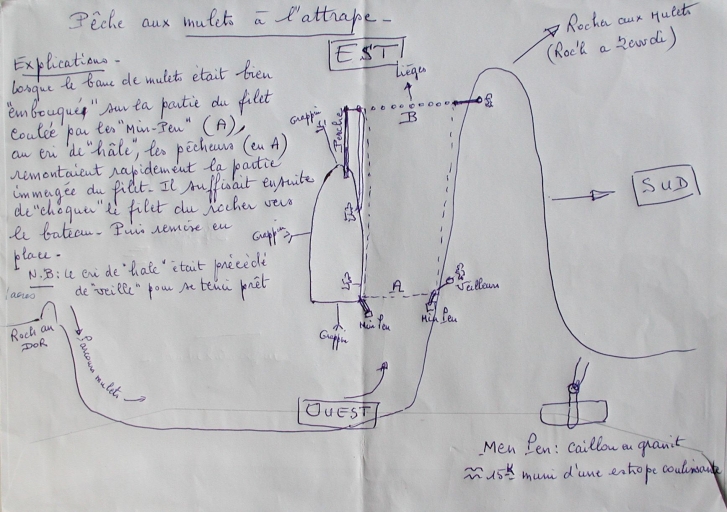 Pêche aux mulets à l'attrape -
EST
Rocher aux Mulets
(Roc'h a
Explications -
Lorsque le banc de mulets était bien
"embouqués" sur la partie du filet
coulée par les "Min-Pen" (A),
au cri de "hâle", les pêcheurs (en A)
remontaient rapidement la partie
immergée du filet. Il suffisait ensuite
de "choquer" le filet du rocher vers
le bateau. Puis remise en
place.
N.B: le cri de "hale" était précédé
de "veille" pour se tenir prêt
Lièges
B
Grappin
Perche
SUD
Grappin
A
Veilleur
Min Pen
Min Pen
Grappin
Roch an
DOR
Parcours mulets
OUEST
Men Pen: caillou en granit
≈ 15K muni d'une estrope coulissante